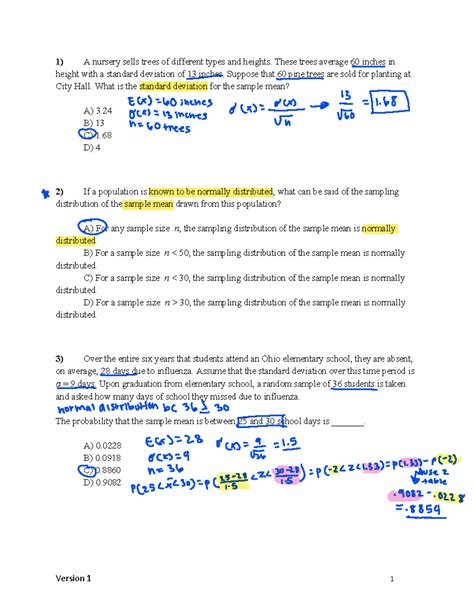 1) A nursery sells trees of different types and heights. These trees average 60 inches in
height with a standard deviation of 13 inches. Suppose that 60 pine trees are sold for planting at
City Hall. What is the standard deviation for the sample mean?
E(x) = 60 inches
σ(x) = 13 inches
n = 60 trees
σ(x̄) = σ(x)/√n → 13/√60 = 1.68
A) 3.24
B) 13
C) 1.68
D) 4
2) If a population is known to be normally distributed, what can be said of the sampling
distribution of the sample mean drawn from this population?
A) For any sample size n, the sampling distribution of the sample mean is normally
distributed.
B) For a sample size n < 50, the sampling distribution of the sample mean is normally
distributed.
C) For a sample size n < 30, the sampling distribution of the sample mean is normally
distributed.
D) For a sample size n > 30, the sampling distribution of the sample mean is normally
distributed.
3) Over the entire six years that students attend an Ohio elementary school, they are absent,
on average, 28 days due to influenza. Assume that the standard deviation over this time period is
σ = 9 days. Upon graduation from elementary school, a random sample of 36 students is taken
and asked how many days of school they missed due to influenza.
normal distribution bc 36 ≥ 30
The probability that the sample mean is between 25 and 30 school days is _______.
A) 0.0228
B) 0.0918
C) 0.8860
D) 0.9082
E(x) = 28
σ(x) = 9
n = 36
σ(x̄) = 9/√36 = 1.5
P(25<x̄<30) = P(25-28/1.5 < Z < 30-28/1.5) = P(-2<Z<1.33) = P(1.33) - P(-2)
use z
table
.9082 - .0228
= .8854
Version 1
1